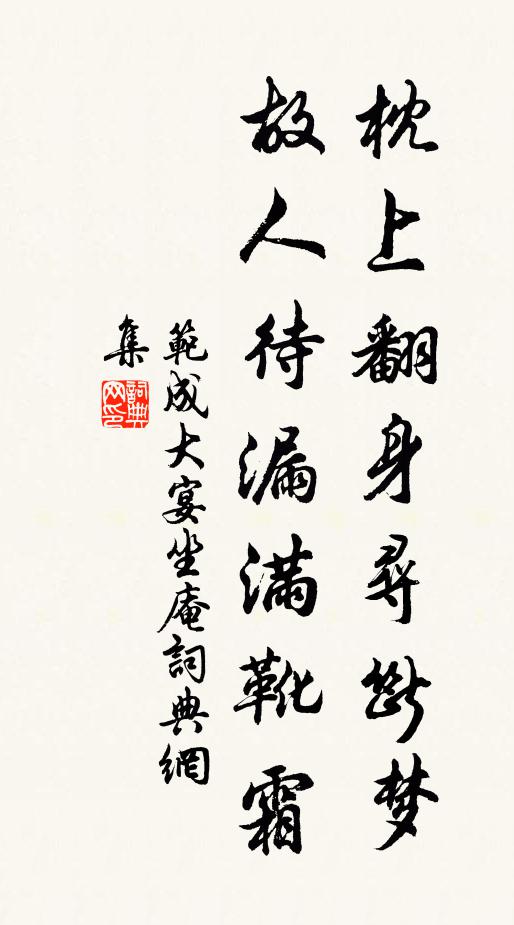 枕上翻身尋斷梦
故人待漏滿靴霜
範成大宴坐庵詞典網
集
詞典網印